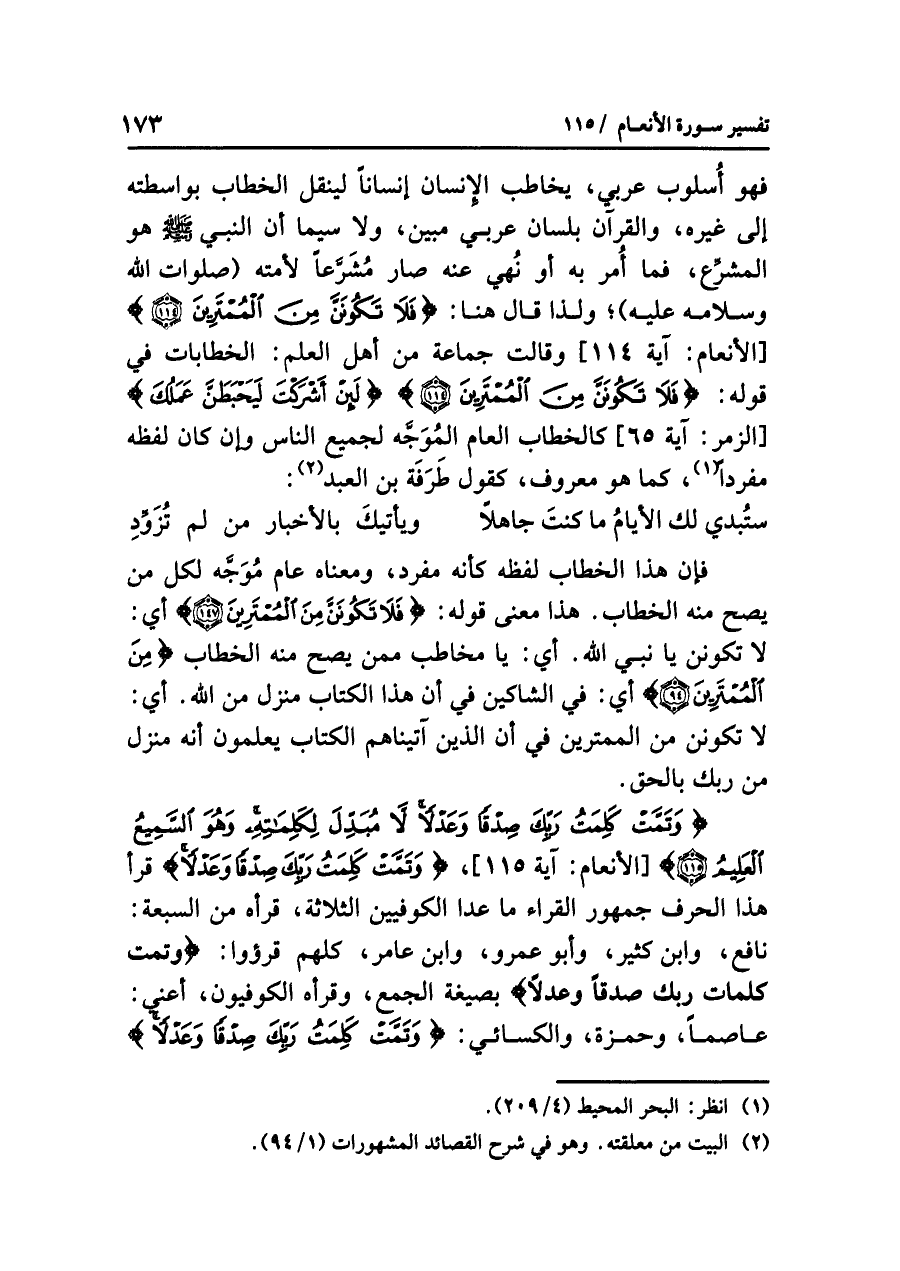 تفسير سورة الأنعام / ١١٥ ١٧٣
فهو أُسلوب عربي، يخاطب الإِنسان إنساناً لينقل الخطاب بواسطته
إلى غيره، والقرآن بلسان عربي مبين، ولا سيما أن النبي ﷺ هو
المشرِّع، فما أُمر به أو نُهي عنه صار مُشَرَّعاً لأمته (صلوات الله
وسلامه عليه)؛ ولذا قال هنا: ﴿فَلَا تَكُونَنَّ مِنَ ٱلْمُمْتَرِينَ ١١٤﴾
[الأنعام: آية ١١٤] وقالت جماعة من أهل العلم: الخطابات في
قوله: ﴿فَلَا تَكُونَنَّ مِنَ ٱلْمُمْتَرِينَ ١١٤﴾ ﴿لَئِنْ أَشْرَكْتَ لَيَحْبَطَنَّ عَمَلُكَ﴾
[الزمر: آية ٦٥] كالخطاب العام المُوَجَّه لجميع الناس وإن كان لفظه
مفرداً(١)، كما هو معروف، كقول طَرَفَة بن العبد(٢):
ستُبدي لك الأيامُ ما كنتَ جاهلاً ويأتيكَ بالأخبار من لم تُزَوِّدِ
فإن هذا الخطاب لفظه كأنه مفرد، ومعناه عام مُوَجَّه لكل من
يصح منه الخطاب. هذا معنى قوله: ﴿فَلَا تَكُونَنَّ مِنَ ٱلْمُمْتَرِينَ ١٤٧﴾ أي:
لا تكونن يا نبي الله. أي: يا مخاطب ممن يصح منه الخطاب ﴿مِنَ
ٱلْمُمْتَرِينَ ٩٤﴾ أي: في الشاكين في أن هذا الكتاب منزل من الله. أي:
لا تكونن من الممترين في أن الذين آتيناهم الكتاب يعلمون أنه منزل
من ربك بالحق.
﴿وَتَمَّتْ كَلِمَتُ رَبِّكَ صِدْقًا وَعَدْلًا ۚ لَّا مُبَدِّلَ لِكَلِمَـٰتِهِۦ ۚ وَهُوَ ٱلسَّمِيعُ
ٱلْعَلِيمُ ١١٥﴾ [الأنعام: آية ١١٥]، ﴿وَتَمَّتْ كَلِمَتُ رَبِّكَ صِدْقًا وَعَدْلًا ۚ﴾ قرأ
هذا الحرف جمهور القراء ما عدا الكوفيين الثلاثة، قرأه من السبعة:
نافع، وابن كثير، وأبو عمرو، وابن عامر، كلهم قرؤوا: ﴿وتمت
كلمات ربك صدقاً وعدلاً﴾ بصيغة الجمع، وقرأه الكوفيون، أعني:
عاصماً، وحمزة، والكسائي: ﴿وَتَمَّتْ كَلِمَتُ رَبِّكَ صِدْقًا وَعَدْلًا ۚ﴾
(١) انظر: البحر المحيط (٤/ ٢٠٩).
(٢) البيت من معلقته. وهو في شرح القصائد المشهورات (١/ ٩٤).